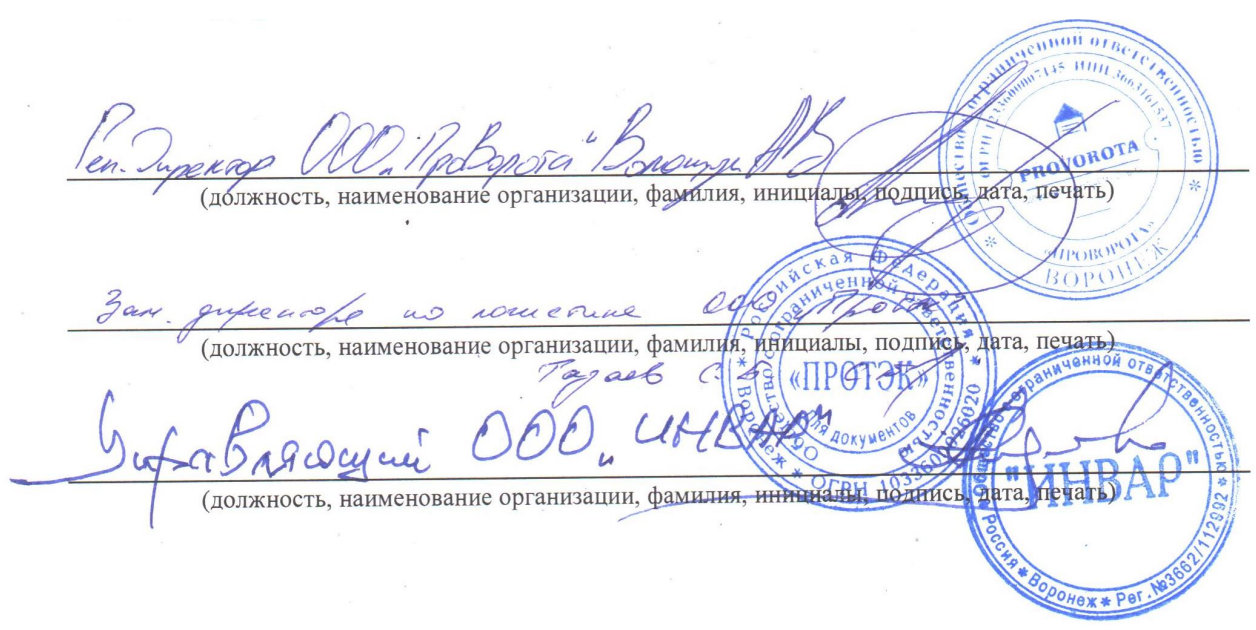 Ген. Директор ООО „ПроВорота" Волошук АВ
(должность, наименование организации, фамилия, инициалы, подпись, дата, печать)
Общество с ограниченной ответственностью
ИНН 3663161537
PROVOROTA
«ПРОВОРОТА»
ВОРОНЕЖ
Зам. директора по логистике ООО „Протэк"
(должность, наименование организации, фамилия, инициалы, подпись, дата, печать)
Российская Федерация * г. Воронеж * ОГРН
Общество с ограниченной ответственностью
«ПРОТЭК»
для документов
Управляющий ООО „ИНВАР"
(должность, наименование организации, фамилия, инициалы, подпись, дата, печать)
Общество с ограниченной ответственностью
"ИНВАР"
Россия * Воронеж * Рег.№3662/112992 *